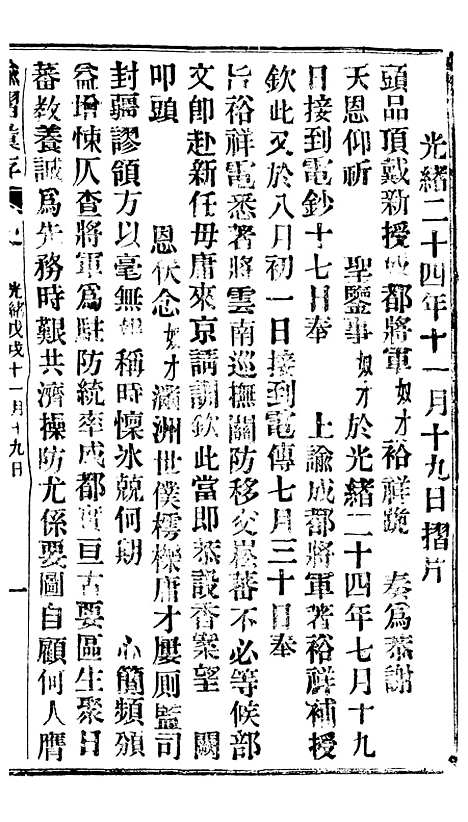 光緒二十四年十一月十九日摺片
頭品頂戴新授成都將軍奴才裕祥跪 奏爲恭謝
天恩仰祈 聖鑒事奴才於光緒二十四年七月十九
日接到電鈔十七日奉 上諭成都將軍著裕祥補授
欽此又於八月初一日接到電傳七月三十日奉
旨裕祥電悉著將雲南巡撫關防移交崧蕃不必等候部
文卽赴新任毋庸來京請訓欽此當卽恭設香案望 闕
叩頭 恩伏念奴才滿洲世僕樗櫟庸才屢厠監司
封疆謬領方以毫無 稱時懍冰兢何期 心簡頻頒
益增悚仄查將軍爲駐防統率成都實亘古要區生聚日
蕃教養誠爲先務時艱共濟操防尤係要圖自顧何人膺
諭摺彙存 光緒戊戌十一月十九日 一